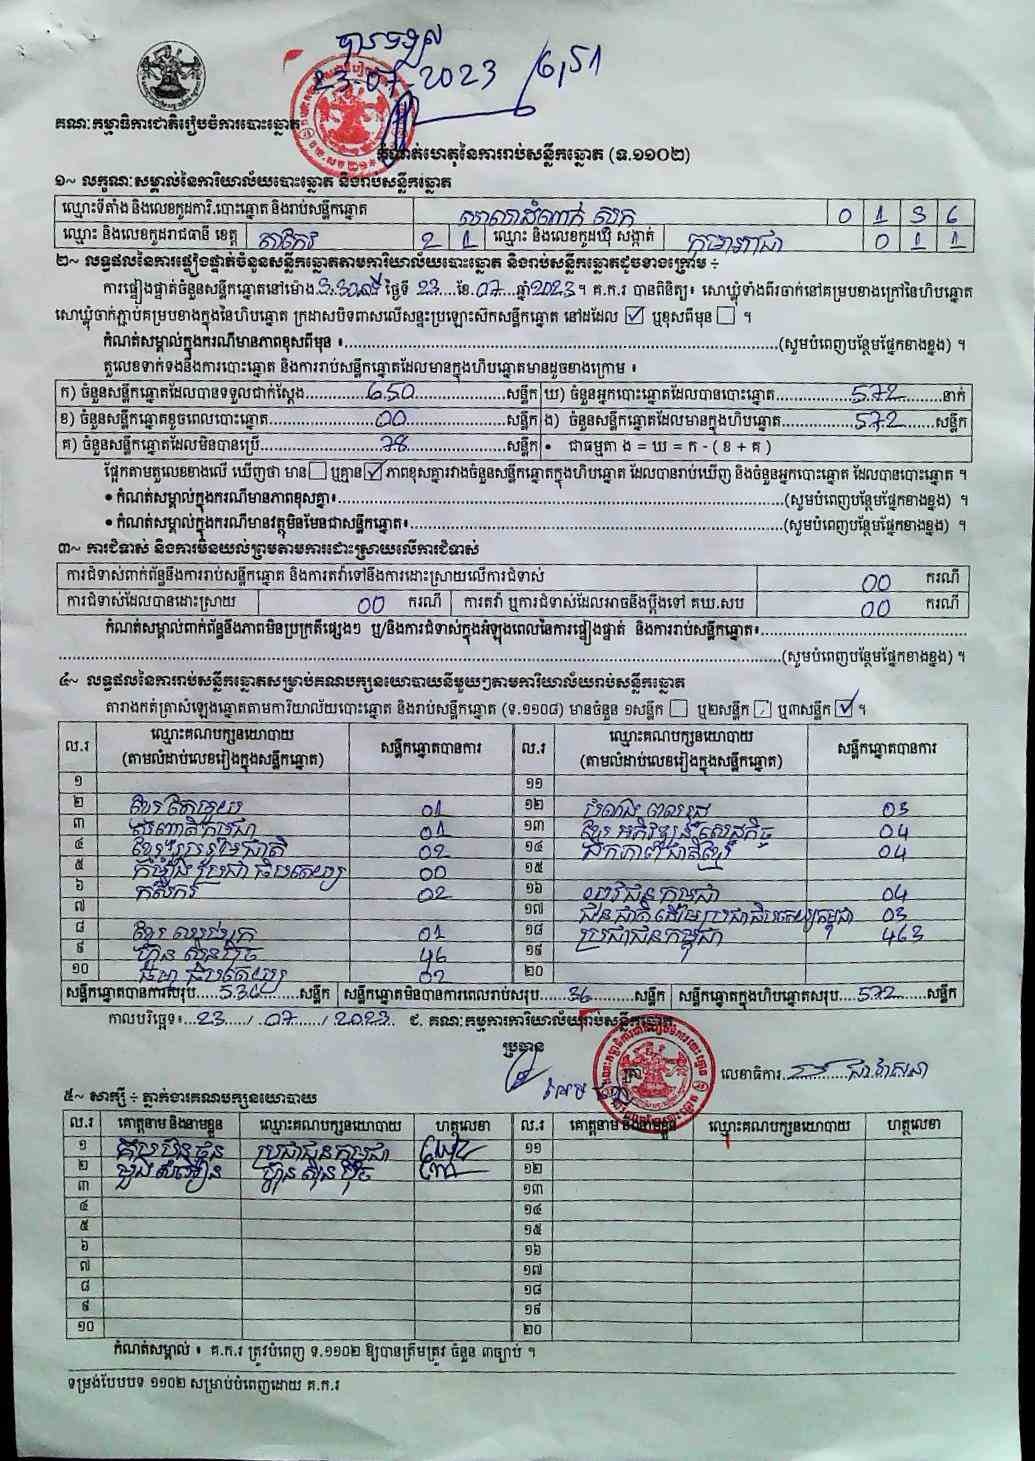 បានទទួល
23-07-2023
គណៈកម្មាធិការជាតិរៀបចំការបោះឆ្នោត
កំណត់ហេតុនៃការរាប់សន្លឹកឆ្នោត (ទ.១១០២)
១~ លក្ខណៈសម្គាល់នៃការិយាល័យបោះឆ្នោត និងរាប់សន្លឹកឆ្នោត
ឈ្មោះទីតាំង និងលេខកូដការិ.បោះឆ្នោត និងរាប់សន្លឹកឆ្នោត សាលាដំណាក់ 0 1 3 6
ឈ្មោះ និងលេខកូដរាជធានី ខេត្ត តាកែវ 2 1 ឈ្មោះ និងលេខកូដឃុំ សង្កាត់ 0 1 1
២~ លទ្ធផលនៃការផ្ទៀងផ្ទាត់ចំនួនសន្លឹកឆ្នោតតាមការិយាល័យបោះឆ្នោត និងរាប់សន្លឹកឆ្នោតដូចខាងក្រោម ÷
ការផ្ទៀងផ្ទាត់ចំនួនសន្លឹកឆ្នោតនៅម៉ោង ថ្ងៃទី 23 ខែ 07 ឆ្នាំ 2023 ។ គ.ក.រ បានពិនិត្យ៖ សោឃ្លុំទាំងពីរចាក់នៅគម្របខាងក្រៅនៃហិបឆ្នោត
សោឃ្លុំចាក់ភ្ជាប់គម្របខាងក្នុងនៃហិបឆ្នោត ក្រដាសបិទពាសលើសន្ទះប្រឡោះស៊កសន្លឹកឆ្នោត នៅដដែល ☑ ឬខុសពីមុន ☐ ។
កំណត់សម្គាល់ក្នុងករណីមានភាពខុសពីមុន ៖ (សូមបំពេញបន្ថែមផ្នែកខាងខ្នង) ។
តួលេខទាក់ទងនឹងការបោះឆ្នោត និងការរាប់សន្លឹកឆ្នោតដែលមានក្នុងហិបឆ្នោតមានដូចខាងក្រោម ៖
ក) ចំនួនសន្លឹកឆ្នោតដែលបានទទួលជាក់ស្តែង 650 សន្លឹក ឃ) ចំនួនអ្នកបោះឆ្នោតដែលបានបោះឆ្នោត 572 នាក់
ខ) ចំនួនសន្លឹកឆ្នោតខូចពេលបោះឆ្នោត 00 សន្លឹក ង) ចំនួនសន្លឹកឆ្នោតដែលមានក្នុងហិបឆ្នោត 572 សន្លឹក
គ) ចំនួនសន្លឹកឆ្នោតដែលមិនបានប្រើ 78 សន្លឹក • ជាធម្មតា ង = ឃ = ក - ( ខ + គ )
ផ្អែកតាមតួលេខខាងលើ ឃើញថា មាន ☐ ឬគ្មាន ☑ ភាពខុសគ្នារវាងចំនួនសន្លឹកឆ្នោតក្នុងហិបឆ្នោត ដែលបានរាប់ឃើញ និងចំនួនអ្នកបោះឆ្នោត ដែលបានបោះឆ្នោត ។
• កំណត់សម្គាល់ក្នុងករណីមានភាពខុសគ្នា៖ (សូមបំពេញបន្ថែមផ្នែកខាងខ្នង) ។
• កំណត់សម្គាល់ក្នុងករណីមានវត្ថុមិនមែនជាសន្លឹកឆ្នោត៖ (សូមបំពេញបន្ថែមផ្នែកខាងខ្នង) ។
៣~ ការជំទាស់ និងការមិនយល់ព្រមតាមការដោះស្រាយលើការជំទាស់
ការជំទាស់ពាក់ព័ន្ធនឹងការរាប់សន្លឹកឆ្នោត និងការតវ៉ាទៅនឹងការដោះស្រាយលើការជំទាស់ 00 ករណី
ការជំទាស់ដែលបានដោះស្រាយ 00 ករណី ការតវ៉ា ឬការជំទាស់ដែលអាចនឹងប្តឹងទៅ គឃ.សប 00 ករណី
កំណត់សម្គាល់ពាក់ព័ន្ធនឹងភាពមិនប្រក្រតីផ្សេងៗ ឬ/និងការជំទាស់ក្នុងអំឡុងពេលនៃការផ្ទៀងផ្ទាត់ និងការរាប់សន្លឹកឆ្នោត៖
(សូមបំពេញបន្ថែមផ្នែកខាងខ្នង) ។
៤~ លទ្ធផលនៃការរាប់សន្លឹកឆ្នោតសម្រាប់គណបក្សនយោបាយនីមួយៗតាមការិយាល័យរាប់សន្លឹកឆ្នោត
តារាងកត់ត្រាសំឡេងឆ្នោតតាមការិយាល័យបោះឆ្នោត និងរាប់សន្លឹកឆ្នោត (ទ.១១០៨) មានចំនួន ១សន្លឹក ☐ ឬ២សន្លឹក ☐ ឬ៣សន្លឹក ☑ ។
ល.រ ឈ្មោះគណបក្សនយោបាយ (តាមលំដាប់លេខរៀងក្នុងសន្លឹកឆ្នោត) សន្លឹកឆ្នោតបានការ ល.រ ឈ្មោះគណបក្សនយោបាយ (តាមលំដាប់លេខរៀងក្នុងសន្លឹកឆ្នោត) សន្លឹកឆ្នោតបានការ
១ ១១
២ ខ្មែរតែមួយ 01 ១២ 03
៣ សញ្ជាតិកម្ពុជា 01 ១៣ ខ្មែរអភិវឌ្ឍន៍សេដ្ឋកិច្ច 04
៤ ខ្មែររួបរួមជាតិ 02 ១៤ ឯកភាពជាតិខ្មែរ 04
៥ កម្លាំងប្រជាធិបតេយ្យ 00 ១៥
៦ កសិករ 02 ១៦ យុវជនកម្ពុជា 04
៧ ១៧ ជនជាតិដើមប្រជាធិបតេយ្យកម្ពុជា 03
៨ ខ្មែរឈប់ក្រ 01 ១៨ ប្រជាជនកម្ពុជា 463
៩ ហ្វ៊ុនស៊ិនប៉ិច 46 ១៩
១០ ធម្មាធិបតេយ្យ 02 ២០
សន្លឹកឆ្នោតបានការសរុប 536 សន្លឹក សន្លឹកឆ្នោតមិនបានការពេលរាប់សរុប 36 សន្លឹក សន្លឹកឆ្នោតក្នុងហិបឆ្នោតសរុប 572 សន្លឹក
កាលបរិច្ឆេទ៖ 23 / 07 / 2023 ជ. គណៈកម្មការការិយាល័យរាប់សន្លឹកឆ្នោត
ប្រធាន
លេខាធិការ
៥~ សាក្សី ÷ ភ្នាក់ងារគណបក្សនយោបាយ
ល.រ គោត្តនាម និងនាមខ្លួន ឈ្មោះគណបក្សនយោបាយ ហត្ថលេខា ល.រ គោត្តនាម និងនាមខ្លួន ឈ្មោះគណបក្សនយោបាយ ហត្ថលេខា
១ ប្រជាជនកម្ពុជា ១១
២ ហ្វ៊ុនស៊ិនប៉ិច ១២
៣ ១៣
៤ ១៤
៥ ១៥
៦ ១៦
៧ ១៧
៨ ១៨
៩ ១៩
១០ ២០
កំណត់សម្គាល់ ៖ គ.ក.រ ត្រូវបំពេញ ទ.១១០២ ឱ្យបានត្រឹមត្រូវ ចំនួន ៣ច្បាប់ ។
ទម្រង់បែបបទ ១១០២ សម្រាប់បំពេញដោយ គ.ក.រ